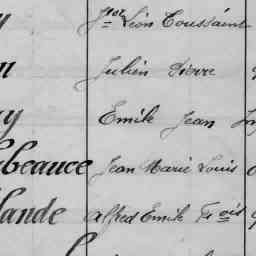 y Léon Toussaint
n Julien Pierre
y Emile Jean
beauce Jean Marie Louis
lande Alfred Emile Fçois